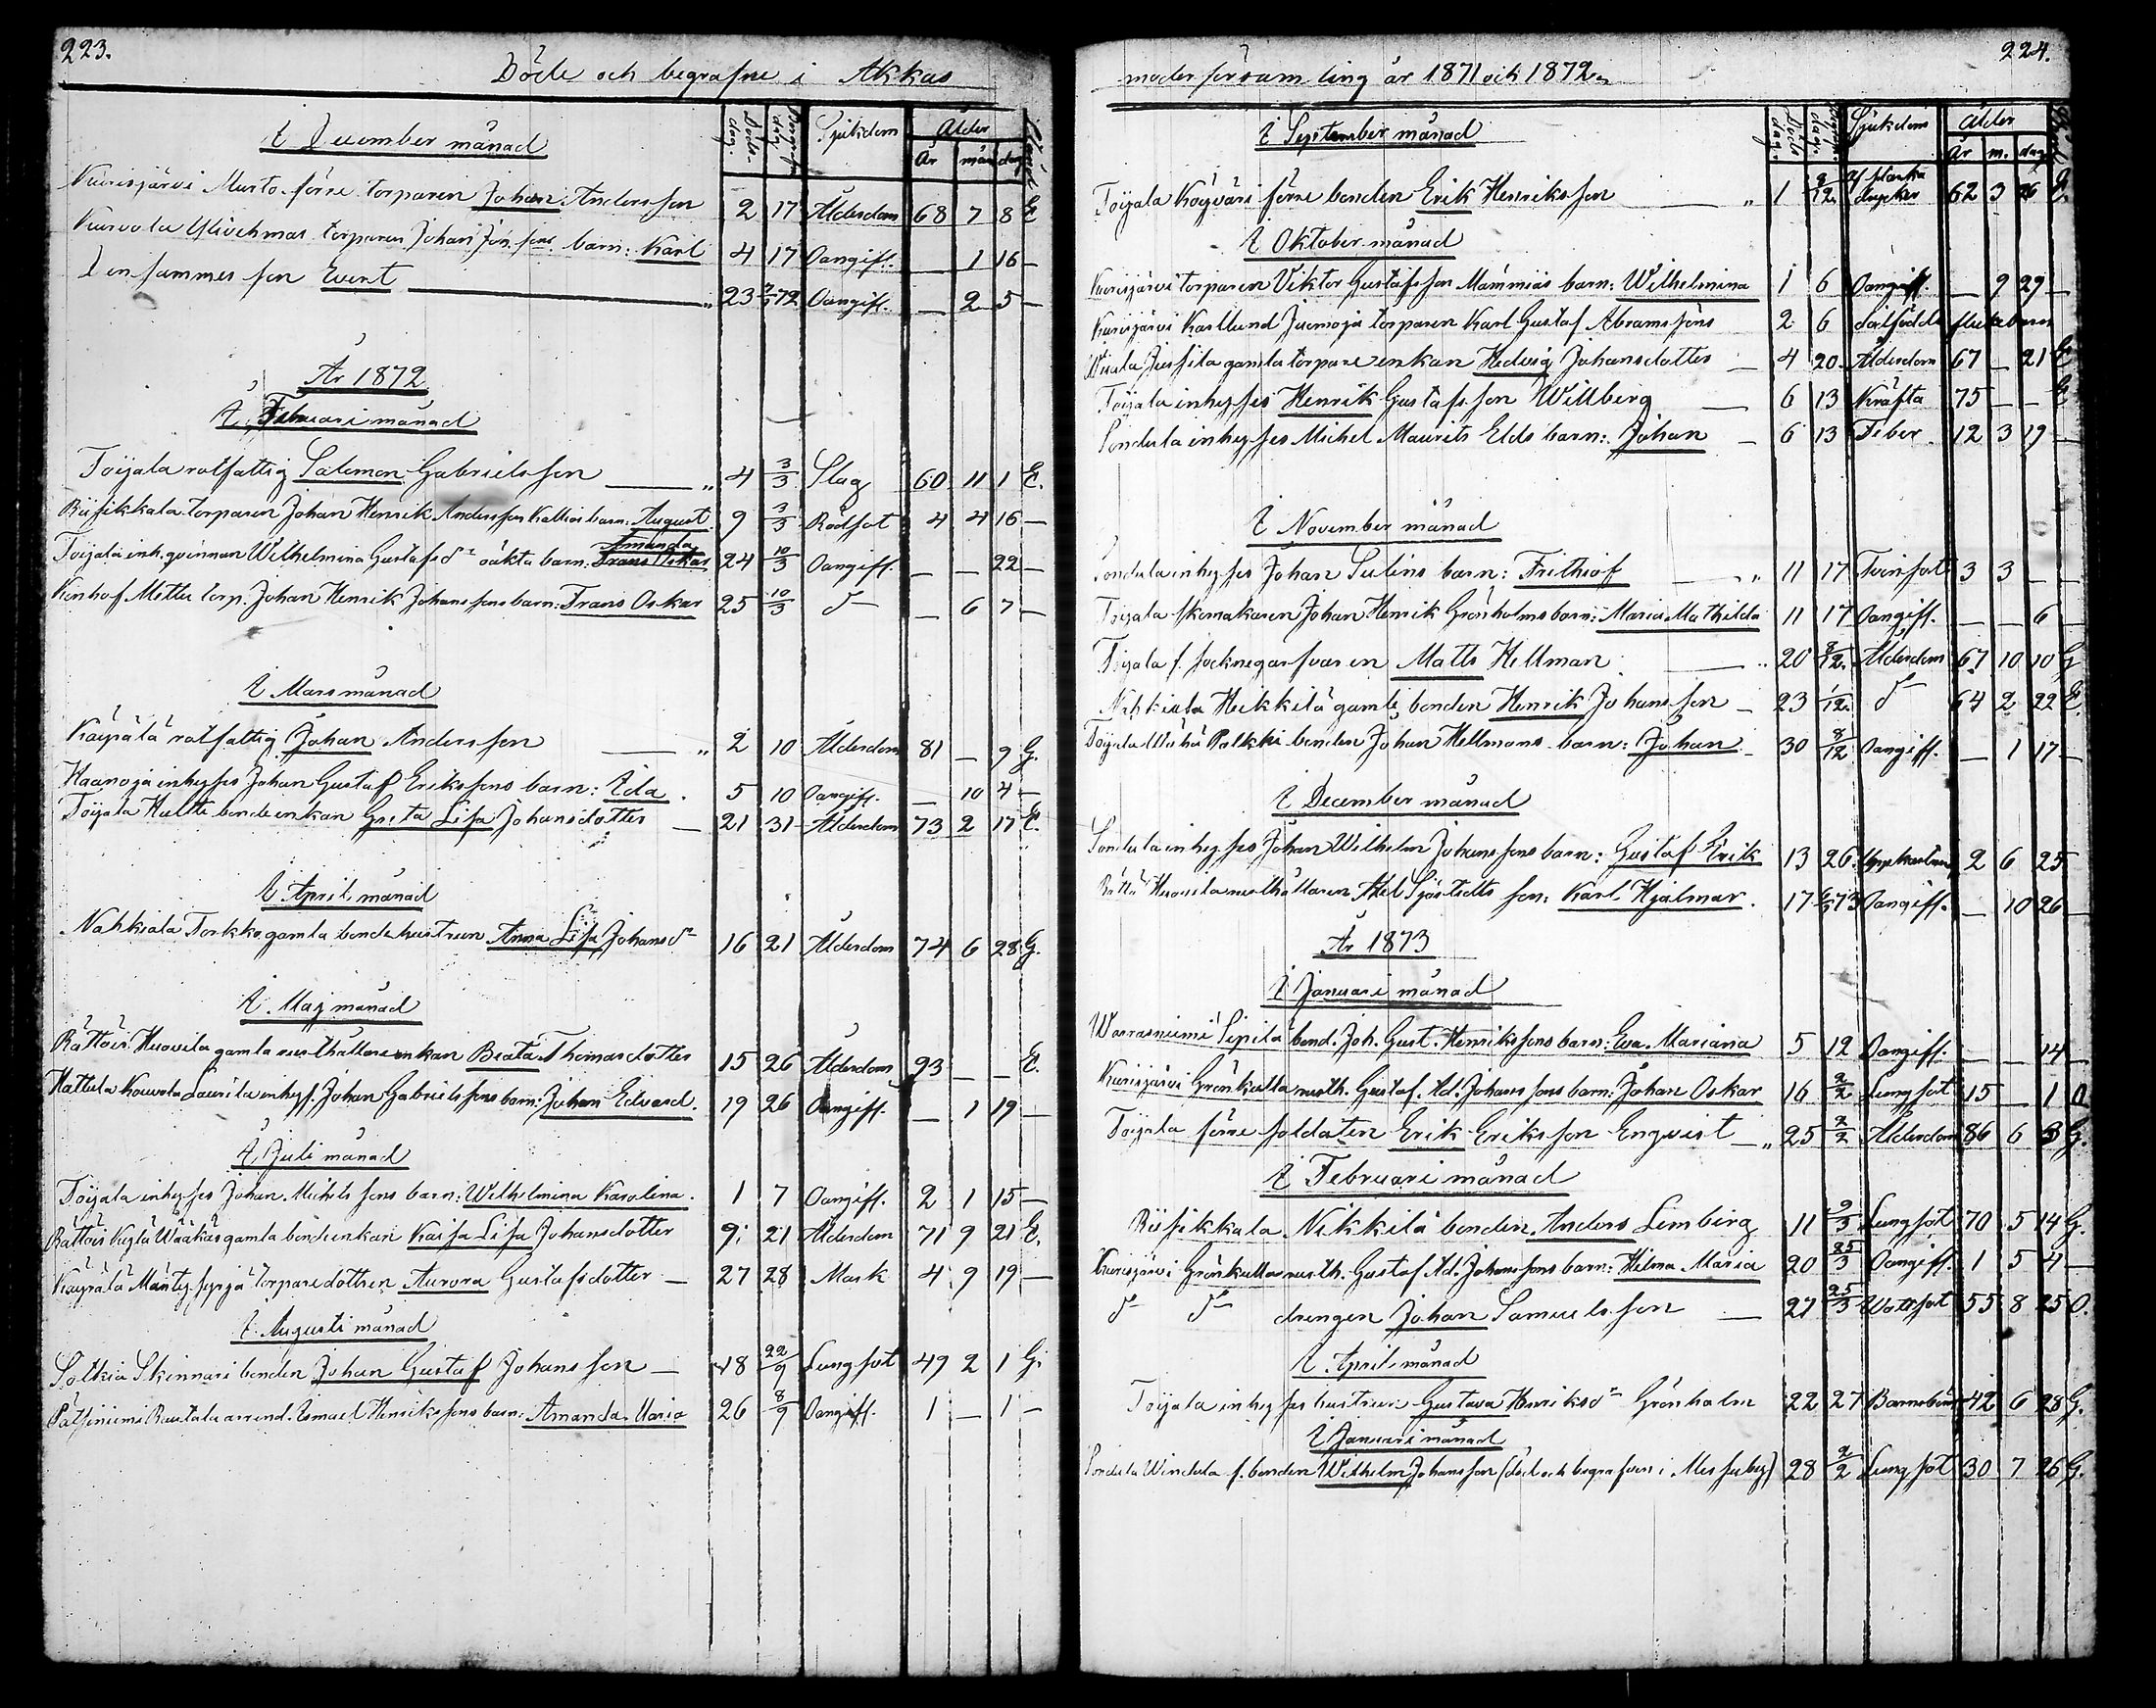 223.
Döde och begrafne i Akkas
I December månad
Döds dag. Begrafn. dag Sjukdom Ålder År mån dag Stånd
Kurisjärvi Murto förre torparen Johan Andersson 2 17 Ålderdom 68 7 8 E
Kurvola Yliöchmas torparen Johan Joh. sons barn: Karl 4 17 Oangiff. — 1 16 —
Densammes son Evert — „ 23 7/1 72 Oangiff. — 2 5 —
År 1872
I Februari månad
Toijala rotfattig Salomon Gabrielsson — „ 4 3/3 Slag 60 11 1 E.
Riisikkala torparen Johan Henrik Andersson Kallios barn: August 9 3/3 Rödsot 4 4 16 —
Toijala inh. qvinnan Wilhelmina Gustafsdr oäkta barn: Frans Oskar Amanda 24 10/3 Oangiff. — — 22 —
Konhof Mettu torp. Johan Henrik Johanssons barn: Frans Oskar 25 10/3 d — 6 7 —
I Mars månad
Käyrälä rotfattig Johan Andersson — „ 2 10 Ålderdom 81 — 9 G.
Haanoja inhyses Johan Gustaf Erikssons barn: Ida. 5 10 Oangiff. — 10 4 —
Toijala Hultti bondeenkan Greta Lisa Johansdotter — 21 31 Ålderdom 73 2 17 E.
I April månad
Nahkiala Torkko gamla bondehustrun Anna Lisa Johansdr 16 21 Ålderdom 74 6 28 G.
I Maj månad
Rättöis Huovila gamla rusthållareenkan Beata Thomasdotter 15 26 Ålderdom 93 — — E.
Hattula Kouvola Laurila inhys. Johan Gabrielssons barn: Johan Edvard. 19 26 Oangiff. — 1 19 —
I Juli månad
Toijala inhyses Johan Michelssons barn: Wilhelmina Karolina. 1 7 Oangiff. 2 1 15 —
Rättöis Kylä Wääkäs gamla bondeenkan Kaisa Lisa Johansdotter 9 21 Ålderdom 71 9 21 E.
Käyrälä Mäntysyrjä torparedottren Aurora Gustafsdotter — 27 28 Mask 4 9 19 —
I Augusti månad
Sotkia Skinnari bonden Johan Gustaf Johansson — 18 22/9 Lungsot 49 2 1 G.
Pätsiniemi Rautala arrend. Ismael Henrikssons barn: Amanda Maria 26 8/9 Oangiff. 1 — 1 —
224.
moderförsamling år 1871 och 1872.
I September månad
Döds dag. Begrafn. dag. Sjukdom Ålder År m. dag Stånd
Toijala Köyväri förre bonden Erik Henriksson — „ 1 9/12 af starka drycker 62 3 26 E.
I Oktober månad
Kurisjärvi torparen Viktor Gustafsson Mämmiäs barn: Wilhelmina 1 6 Oangiff. — 9 29 —
Kurisjärvi Karllund Juomoja torparen Karl Gustaf Abramssons 2 6 dödfödde flickebarn
Wiiala Jussila gamla torpareenkan Hedvig Johansdotter — 4 20 Ålderdom 67 — 21 E
Toijala inhyses Henrik Gustafsson Willberg — 6 13 Kräfta 75 — — E
Sondula inhyses Michel Maurits Elds barn: Johan — 6 13 Feber 12 3 19 —
I November månad
Sondula inhyses Johan Sulins barn: Frithiof — „ 11 17 Tvinsot 3 3 — —
Toijala skomakaren Johan Henrik Grönholms barn: Maria Mathilda 11 17 Oangiff. — — 6 —
Toijala f. socknegarfvaren Matts Hellman — „ 20 8/12 Ålderdom 67 10 10 G
Nahkiala Heikkilä gamle bonden Henrik Johansson — 23 1/12 d 64 2 22 E.
Toijala Wähä Polkki bonden Johan Hellmans barn: Johan — 30 8/12 Oangiff. — 1 17 —
I December månad
Sondula inhyses Johan Wilhelm Johanssons barn: Gustaf Erik 13 26 Uppkastning 2 6 25
Rättöis Huovila rusthållaren Axel Sjöstedts son: Karl Hjalmar. 17 6/1 73 Oangiff. — 10 26 —
År 1873
I Januari månad
Warrasniemi Sipilä bond. Joh. Gust. Henrikssons barn: Eva Mariana 5 12 Oangiff. — — 14 —
Kurisjärvi Grönkulla rusth. Gustaf Ad. Johanssons barn: Johan Oskar 16 2/2 Lungsot 15 — 1 O
Toijala förre soldaten Erik Eriksson Enqvist — „ 25 2/2 Ålderdom 86 6 3 G.
I Februari månad
Riisikkala Nikkilä bonden Anders Limberg 11 2/3 Lungsot 70 5 14 G.
Kurisjärvi Grönkulla rusth. Gustaf Ad. Johanssons barn: Hilma Maria 20 25/3 Oangiff. 1 5 4 —
d d drengen Johan Samuelsson — 27 25/3 Wattsot 55 8 25 O.
I April månad
Toijala inhyses hustrun Gustava Henriksdr Grönholm 22 27 Barnsbörd 42 6 28 G.
I Januari månad
Sondula Windula f. bonden Wilhelm Johansson (död och begrafven i Messuby) 28 2/2 Lungsot 30 7 26 G.